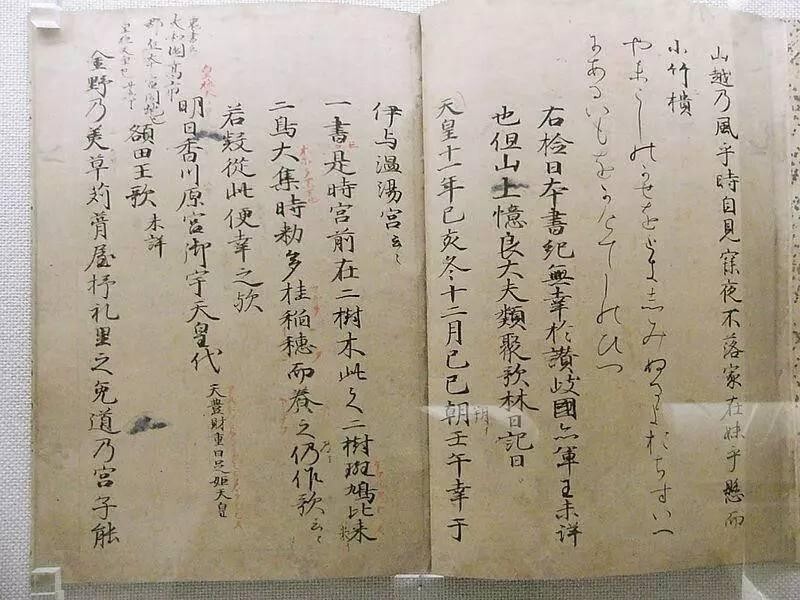 山越乃風乎時自見寐夜不落家在妹乎懸而
小竹樻
やまこしのかせをときしみぬるよおちすいへ
にあるいもをかけてしのひつ
右檢日本書紀無幸於讃岐國亦軍王未詳
也但山上憶良大夫類聚歌林日記曰
天皇十一年己亥冬十二月己巳朝壬午幸于
伊与温湯宮云々
一書是時宮前在二樹木此之二樹斑鳩比来
二鳥大集時勅多桂稲穂而養之仍作歌云々
若疑從此便幸之歟
明日香川原宮御宇天皇代 天豊財重日足姫天皇
額田王歌 未詳
大和國高市
金野乃美草苅葺屋杼礼里之兔道乃宮子能